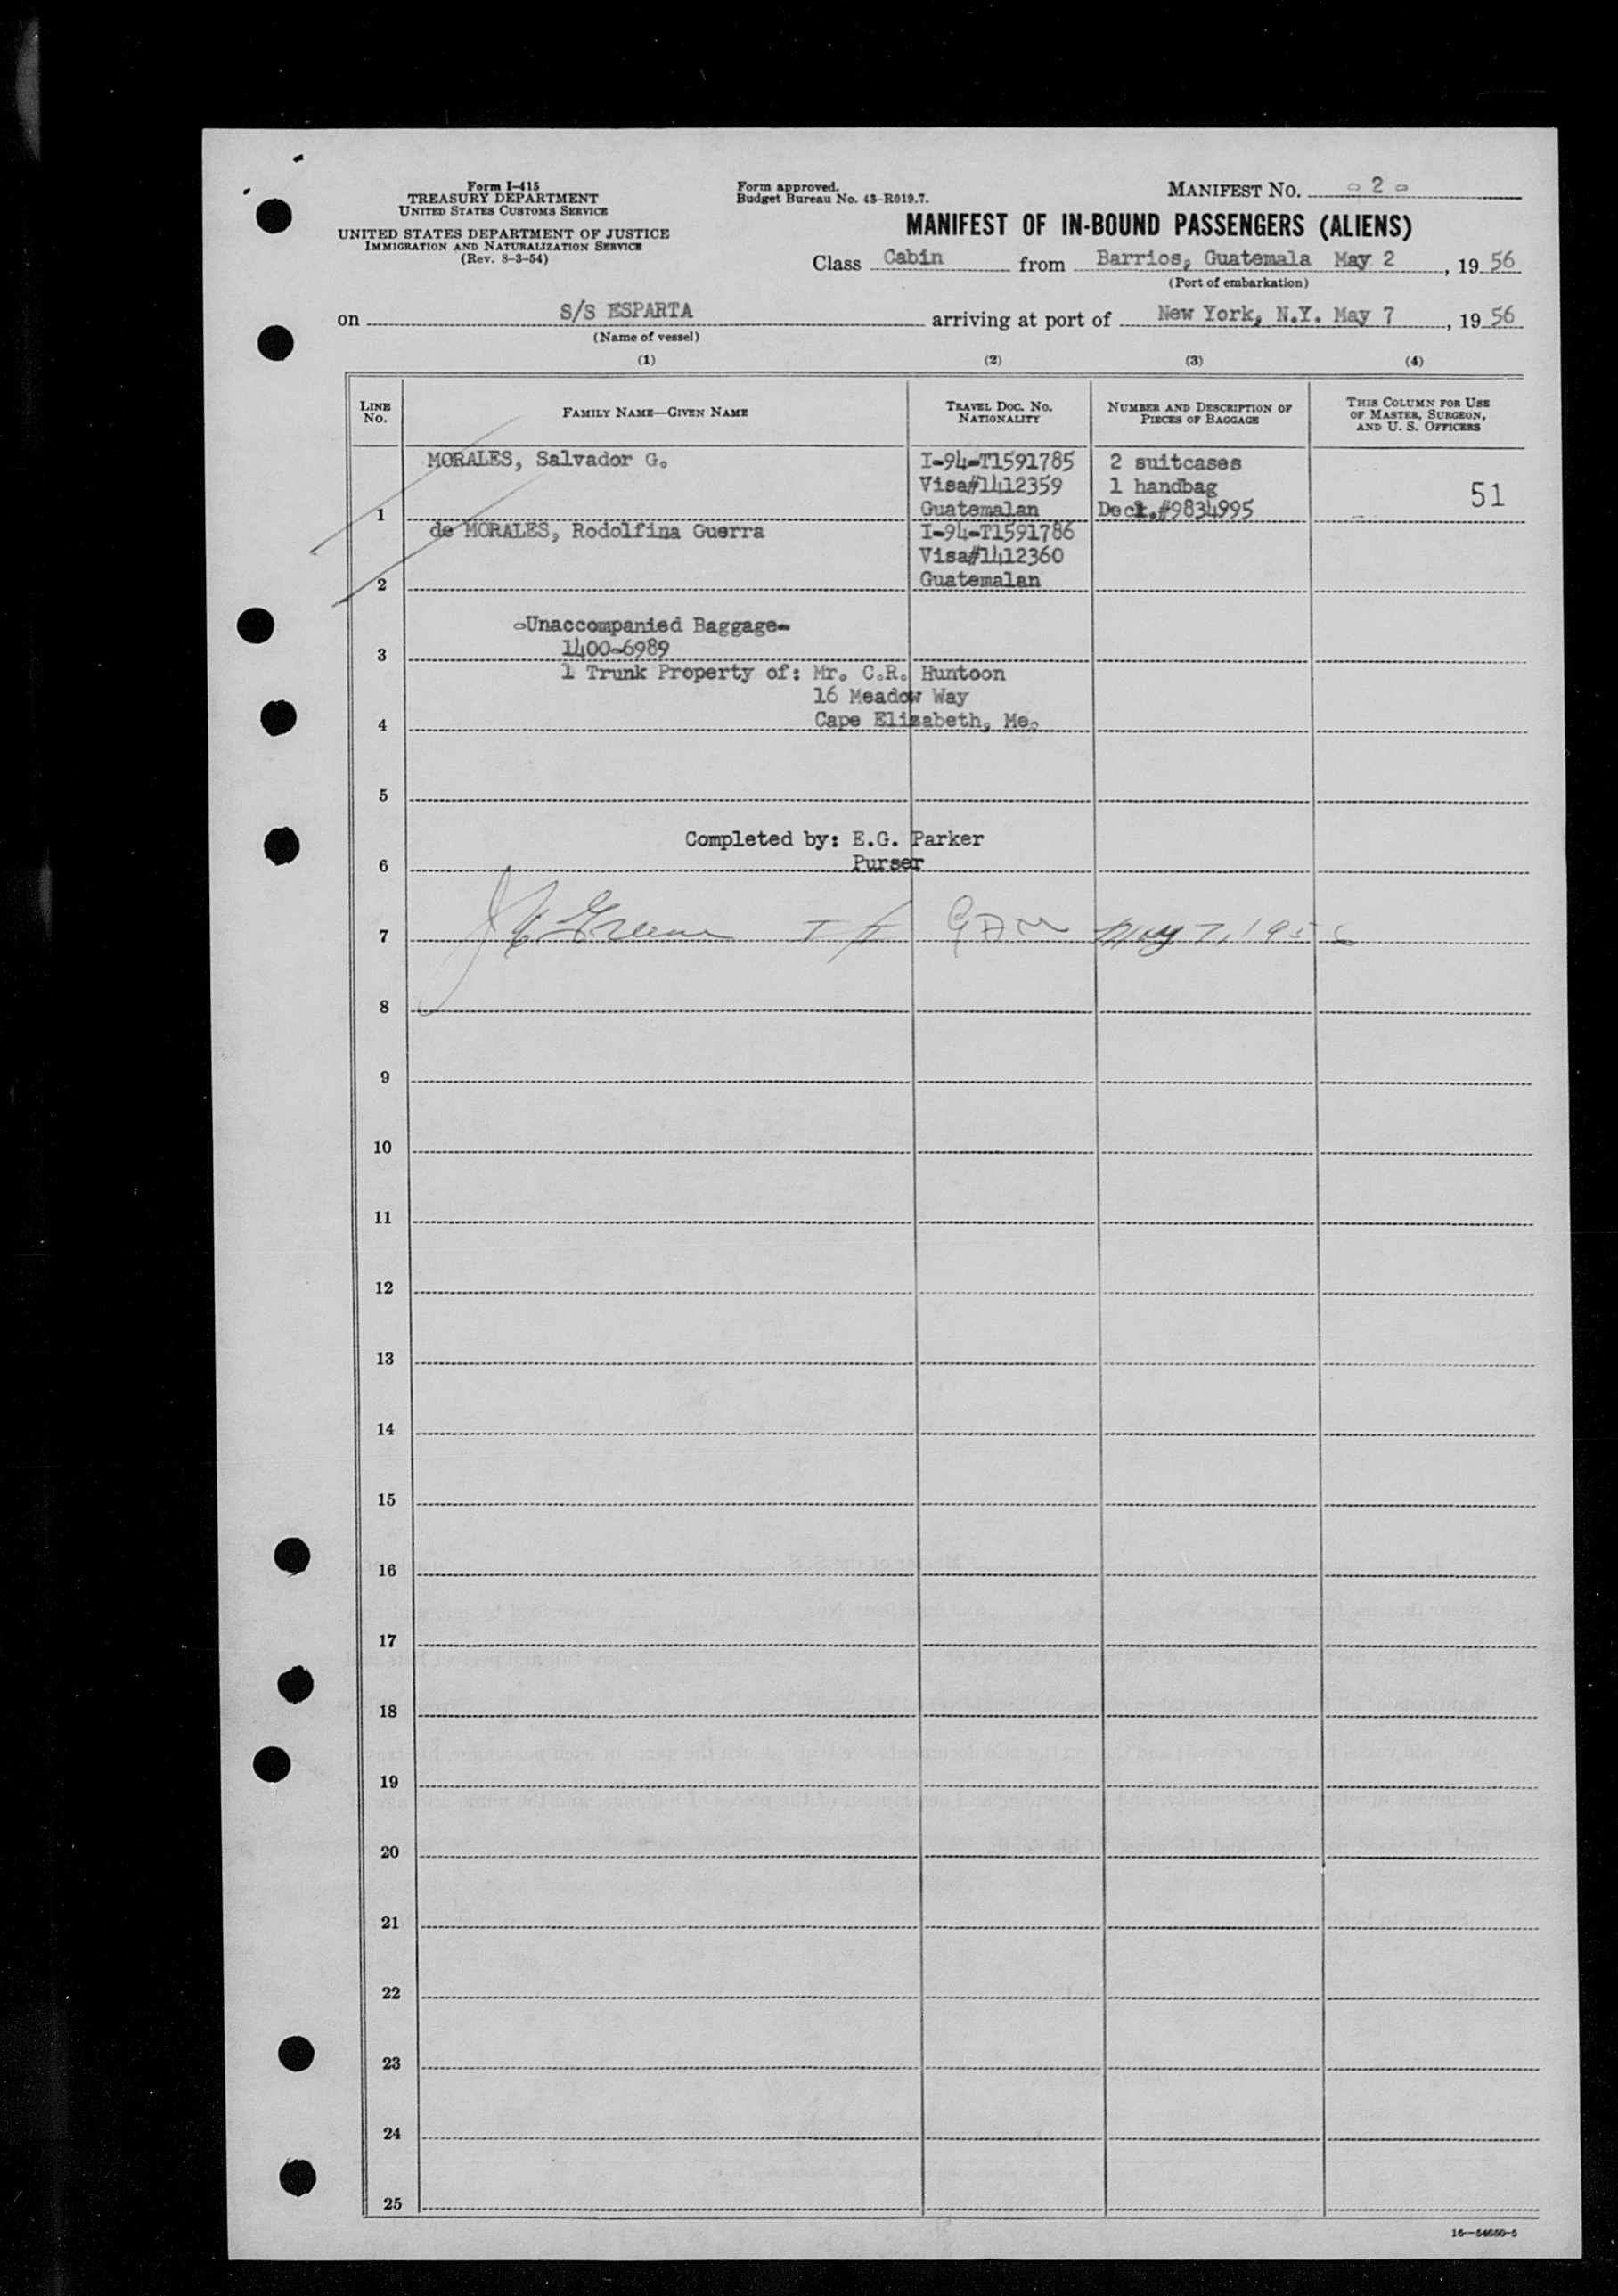 Form I-415
TREASURY DEPARTMENT
UNITED STATES CUSTOMS SERVICE
UNITED STATES DEPARTMENT OF JUSTICE
IMMIGRATION AND NATURALIZATION SERVICE
(Rev. 8-3-54)
Form approved.
Budget Bureau No. 43-R019.7.
MANIFEST NO. - 2 -
MANIFEST OF IN-BOUND PASSENGERS (ALIENS)
Class Cabin from Barrios, Guatemala May 2, 19 56
(Port of embarkation)
on S/S ESPARTA arriving at port of New York, N.Y. May 7, 19 56
(Name of vessel)
(1) (2) (3) (4)
LINE No. FAMILY NAME—GIVEN NAME TRAVEL DOC. NO. NATIONALITY NUMBER AND DESCRIPTION OF PIECES OF BAGGAGE THIS COLUMN FOR USE OF MASTER, SURGEON, AND U. S. OFFICERS
MORALES, Salvador G. I-94-T1591785 2 suitcases
Visa#1412359 1 handbag 51
1 Guatemalan Decl.#9834995
de MORALES, Rodolfina Guerra I-94-T1591786
Visa#1412360
2 Guatemalan
-Unaccompanied Baggage-
3 1400-6989
1 Trunk Property of: Mr. C.R. Huntoon
16 Meadow Way
4 Cape Elizabeth, Me.
5
Completed by: E.G. Parker
6 Purser
7 May 7, 1956
8
9
10
11
12
13
14
15
16
17
18
19
20
21
22
23
24
25